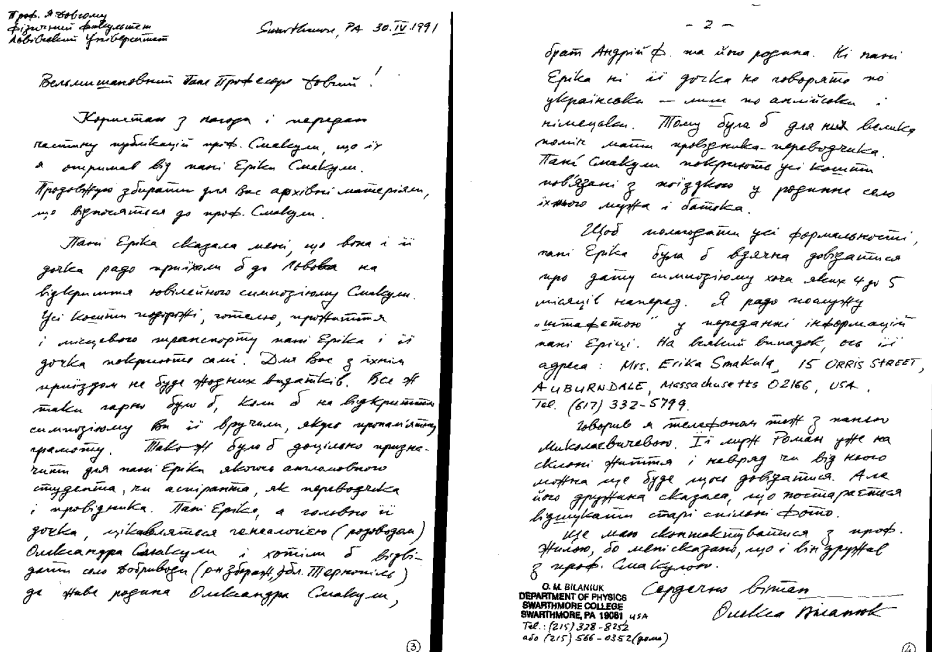 Проф. Я Довгому
Фізичний факультет
Львівський Університет
Swarthmore, PA 30.IV.1991
Вельмишановний Пане Професоре Довгий!
Користаю з нагоди і передаю
частину публікацій проф. Смакули, що їх
я отримав від пані Еріки Смакули.
Продовжую збирати для Вас архівні матеріяли,
що відносяться до проф. Смакули.
Пані Еріка сказала мені, що вона і її
дочка радо приїхали б до Львова на
відкриття ювілейного симпозіюму Смакули.
Усі кошти подорожі, готелю, прожиття
і місцевого транспорту пані Еріка і її
дочка покриють самі. Для Вас з їхнім
приїздом не буде жодних видатків. Все ж
таки гарно було б, коли б на відкриттю
симпозіюму Ви їй вручили якусь пропам'ятну
грамоту. Також було б доцільно призна-
чити для пані Еріки якогось англомовного
студента, чи аспіранта, як перекладчика
і провідника. Пані Еріка, а головно її
дочка, цікавляться генеалогією (родоводом)
Олександра Смакули і хотіли б відві-
дати село Добриводи (рн Збараж, обл. Тернопіль)
де живе родина Олександра Смакули,
3
- 2 -
брат Андрій Ф. та його родина. Ні пані
Еріка ні її дочка не говорять по
українськи — лиш по англійськи і
німецьки. Тому була б для них велика
поміч мати провідника-переводчика.
Пані Смакули покриють усі кошти
пов'язані з поїздкою у родинне село
їхнього мужа і батька.
Щоб полагодити усі формальності,
пані Еріка була б вдячна довідатися
про дату симпозіюму хоча яких 4 до 5
місяців наперед. Я радо послужу
"штафетою" у переданні інформацій
пані Еріці. На всякий випадок, ось її
адреса: Mrs. Erika Smakula, 15 ORRIS STREET,
AUBURNDALE, Massachusetts 02166, USA.
Tel. (617) 332-5799.
Говорив я телефоном теж з панею
Миколаєвичевою. Її муж Роман уже на
схилі життя і навряд чи від нього
можна ще буде щось довідатися. Але
його дружина сказала, що постарається
відшукати старі спільні фото.
Ще маю сконтактуватися з проф.
Жилою, бо мені сказано, що і він дружав
з проф. Смакулою.
Сердечно вітаю
Олекса Біланюк
O. M. BILANIUK
DEPARTMENT OF PHYSICS
SWARTHMORE COLLEGE
SWARTHMORE, PA 19081, USA
Tel.: (215) 328-8252
або (215) 566-0352 (дома)
4